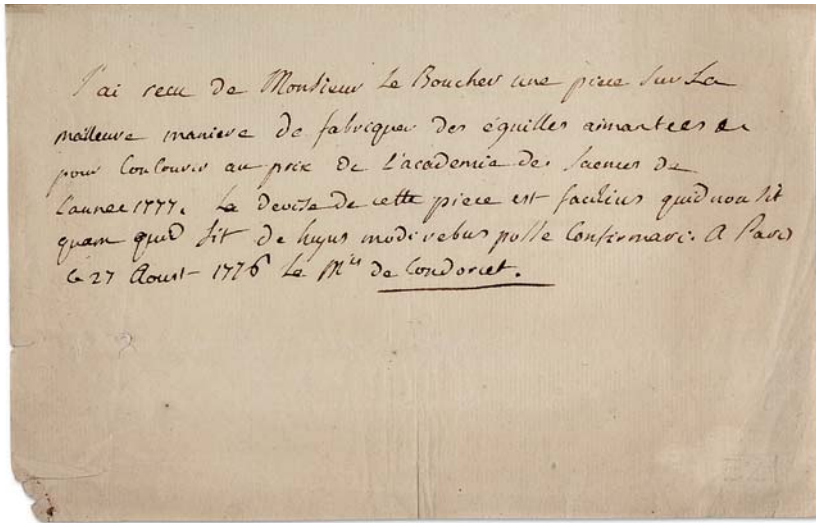 J'ai recu de Monsieur Le Boucher une piece sur La
meilleure maniere de fabriquer des éguilles aimantees
pour Concourir au prix de L'academie des Sciences de
L'annee 1777. La devise de cette piece est facilius quid non sit
quam quid sit de hujus modi rebus posse Confirmari. A Paris
Ce 27 Aoust 1776 Le Mis de Condorcet.